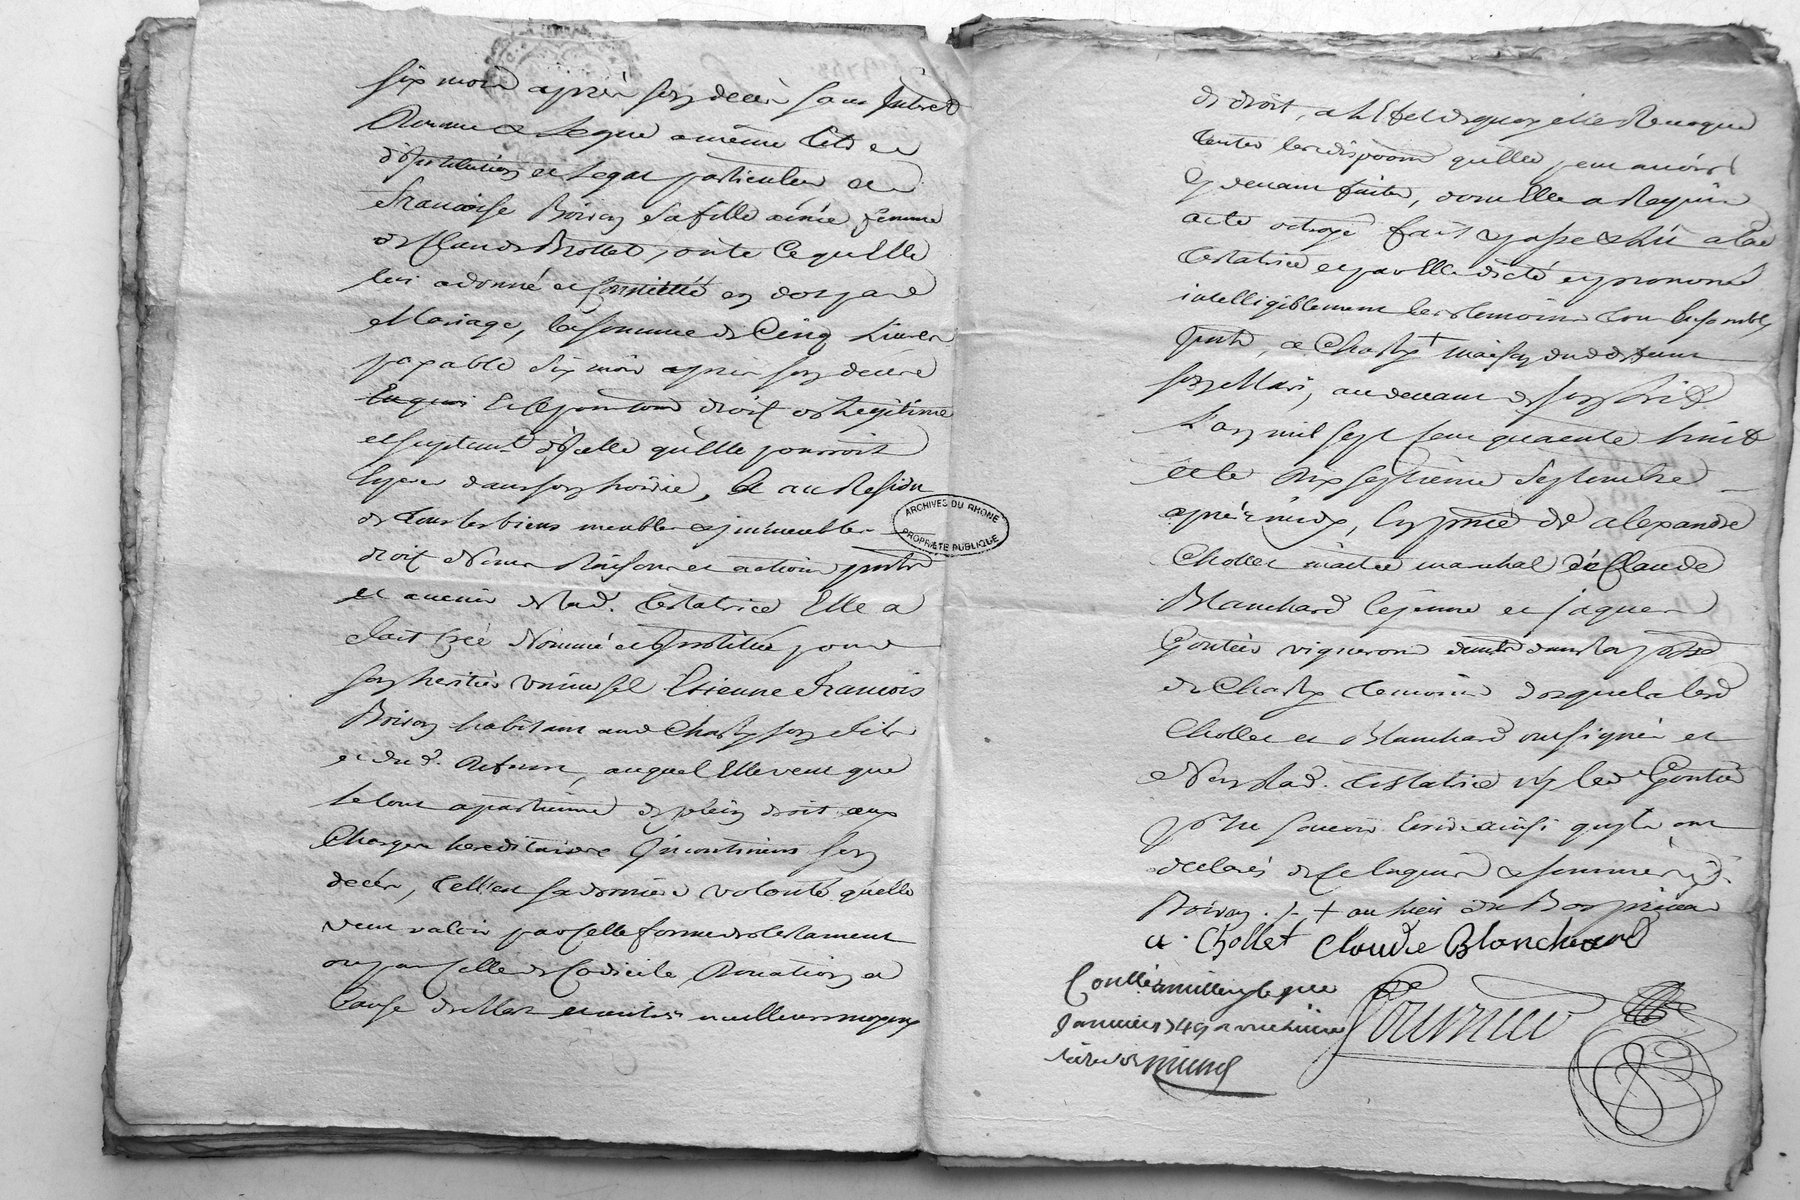 six mois apres son deces sans Interest
Donne & Legue a meme titre
d'Institution et Legat particulier a
Francoise Boiron sa fille ainée, femme
de Claude Brollet, outre ce qu'Elle
luy a donné et Constitué en dot par
Mariage, la somme de Cinq Livres
payable six mois apres son deces
droit de Legitime
et suplement d'Icelle qu'Elle pourroit
Exiger dans son hoirie, Et au Residu
de tous les biens meubles & immeubles
droit Noms Raisons et actions pnts
et avenir de lad. Testatrice Elle a
fait Créé Nommé et Institué pour
son heritier universel Etienne Francois
Boiron habitant aud Charly son fils
et dud. deffunt, auquel Elle veut que
le tout apartienne de plein droit aux
Charges hereditaires Incontinent son
deces, C'est sa derniere volonté qu'elle
veut valoir par celle forme de testament
ou par celle de Codicile, Donation a
Cause de Mort et autres meilleurs moyens
ARCHIVES DU RHONE
PROPRIETE PUBLIQUE
de droit, a l'Effet de quoy elle Revoque
toutes les dispoons qu'elle peut avoir
cy devant faites, dont elle a Requis
acte octroyé fait & passé & lû a lad
testatrice et par Elle dicté et prononcé
intelligiblement les temoins tous Ensemble
pnts, a Charly + maison dud deffunt
son Mari, au devant de son lit
L'an mil sept cent quarante huit
et le Dix septieme Septembre
apres midy, En pnce de alexandre
Chollet maitre marechal de Claude
Blanchard le jeune et jaques
Goutier vignerons dans la psse
de Charly temoins desquels lesd
Chollet et Blanchard ont signés et
Non lad. testatrice ny led Goutier
p'r ne scavoir Ecrire ainsi qu'ils ont
declarés de ce Enquis & sommés
Boiron ./. + au lieu de
a. Chollet Claude Blanchard
Conllé a millery le
Janvier 1749
Fournier